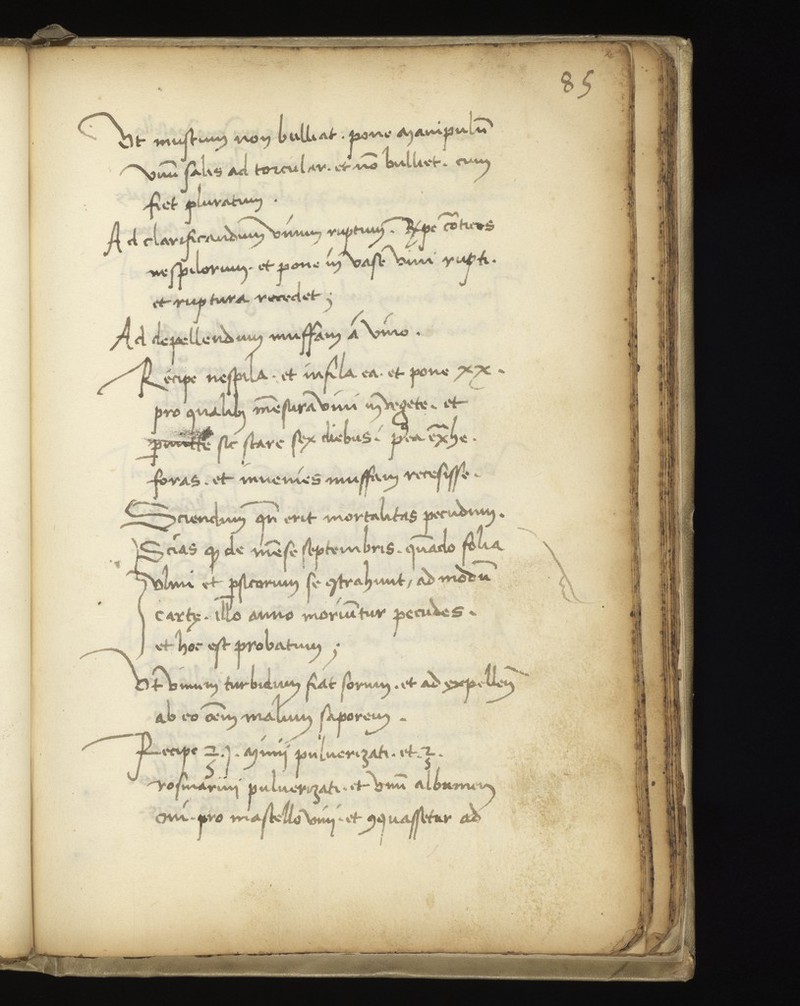 85
Ut mustum non bulliat. pone manipulū
unū salis ad torcular. et nō bulliet. cum
fiet pluratum.
Ad clarificandum vinum ruptum. Rpe cōticos
nespilorum. et pone in vase vini rupti.
et ruptura recedet;
Ad depellendum muffam a vino.
Recipe nespila. et infila ea. et pone xx.
pro qualibꝫ mēsura vini in vegete. et
sic stare sex diebus. pꝰea exͣhe.
foras. et invenies muffam recesisse.
Sciendum qn̄ erit mortalitas pecudum.
Scias ꝙ de mēse septembris. quādo folia
ulmi et ꝑsicorum se ꝯtrahunt, ad modū
cartę. illo anno moriūtur pecudes.
et hoc est probatum;
Ut vinum turbidum fiat sorum. et ad expellen̄
ab eo oēm malum saporem.
Recipe ℥.j. minii pulverizati. et ℥.
rosmarini pulverizati. et unū albumen
ovi. pro mastello vini. et ꝯquassetur ad